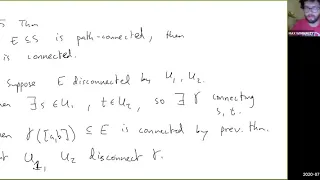 Thm
E ⊆ S is path-connected, then
is connected.
Suppose E disconnected by U₁, U₂.
∃ s ∈ U₁, t ∈ U₂, so ∃ γ connecting
s, t.
γ([a,b]) ⊆ E is connected by prev. thm.
U₁, U₂ disconnect γ.